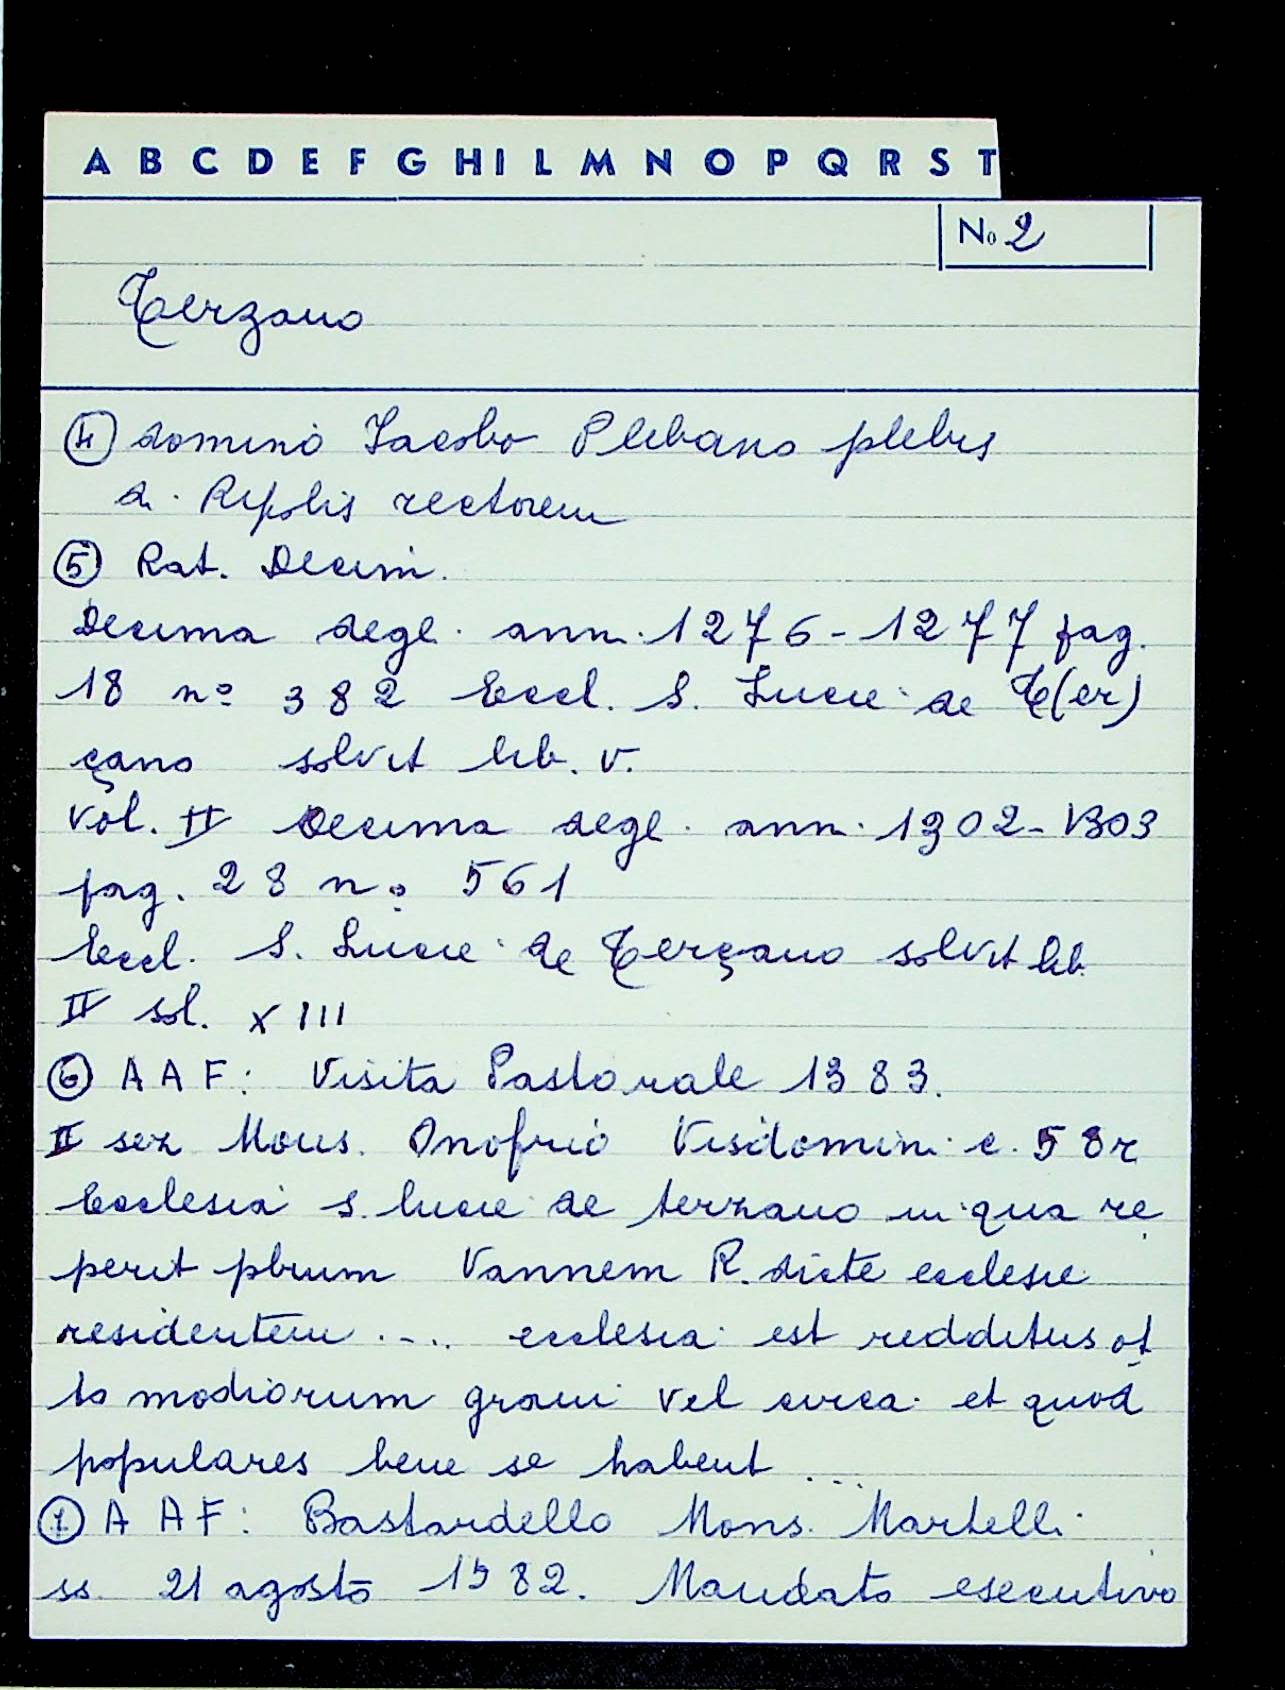 A B C D E F G H I L M N O P Q R S T
No 2
Terzano
④ domino Jacobo Plebano plebis
di Ripolis rectorem
⑤ Rat. Decim.
Decima degl. ann. 1276-1277 pag.
18 nº 382 Eccl. S. Lucie de T(er)
çano solvit lib. V.
Vol. II Decima degl. ann. 1302-1303
pag. 28 nº 561
Eccl. S. Lucie de Terçano solvit lib.
II sol. XIII
⑥ A A F: Visita Pastorale 1383.
II ser Mons. Onofrio Visdomini c. 58r
Ecclesia s. lucie de terzano in qua re
perit pbrum Vannem R. dicte ecclesie
residentem .... ecclesia est redditus ot
to modiorum grani vel circa et quod
populares bene se habent ...
⑦ A A F: Bastardello Mons. Martelli
ss. 21 agosto 1982. Mandato esecutivo